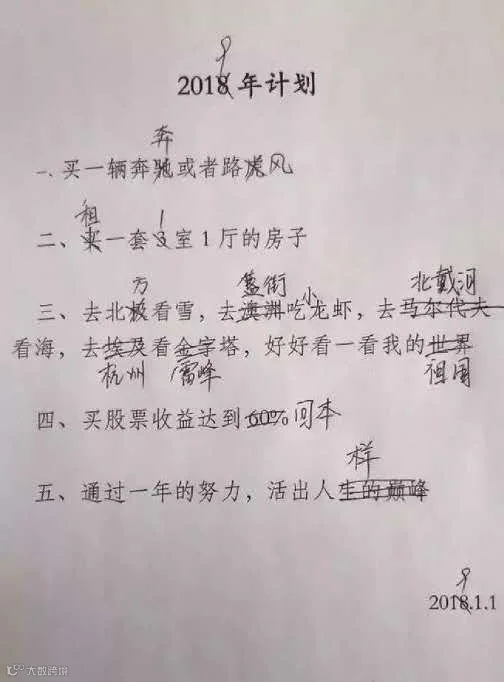 9
2018年计划
奔
一、买一辆奔驰或者路虎风
租 1
二、买一套3室1厅的房子
方 簋街 小 北戴河
三、去北极看雪，去澳洲吃龙虾，去马尔代夫
看海，去埃及看金字塔，好好看一看我的世界
杭州 雷峰 祖国
四、买股票收益达到60%回本
样
五、通过一年的努力，活出人生的巅峰
9
2018.1.1
大数跨境